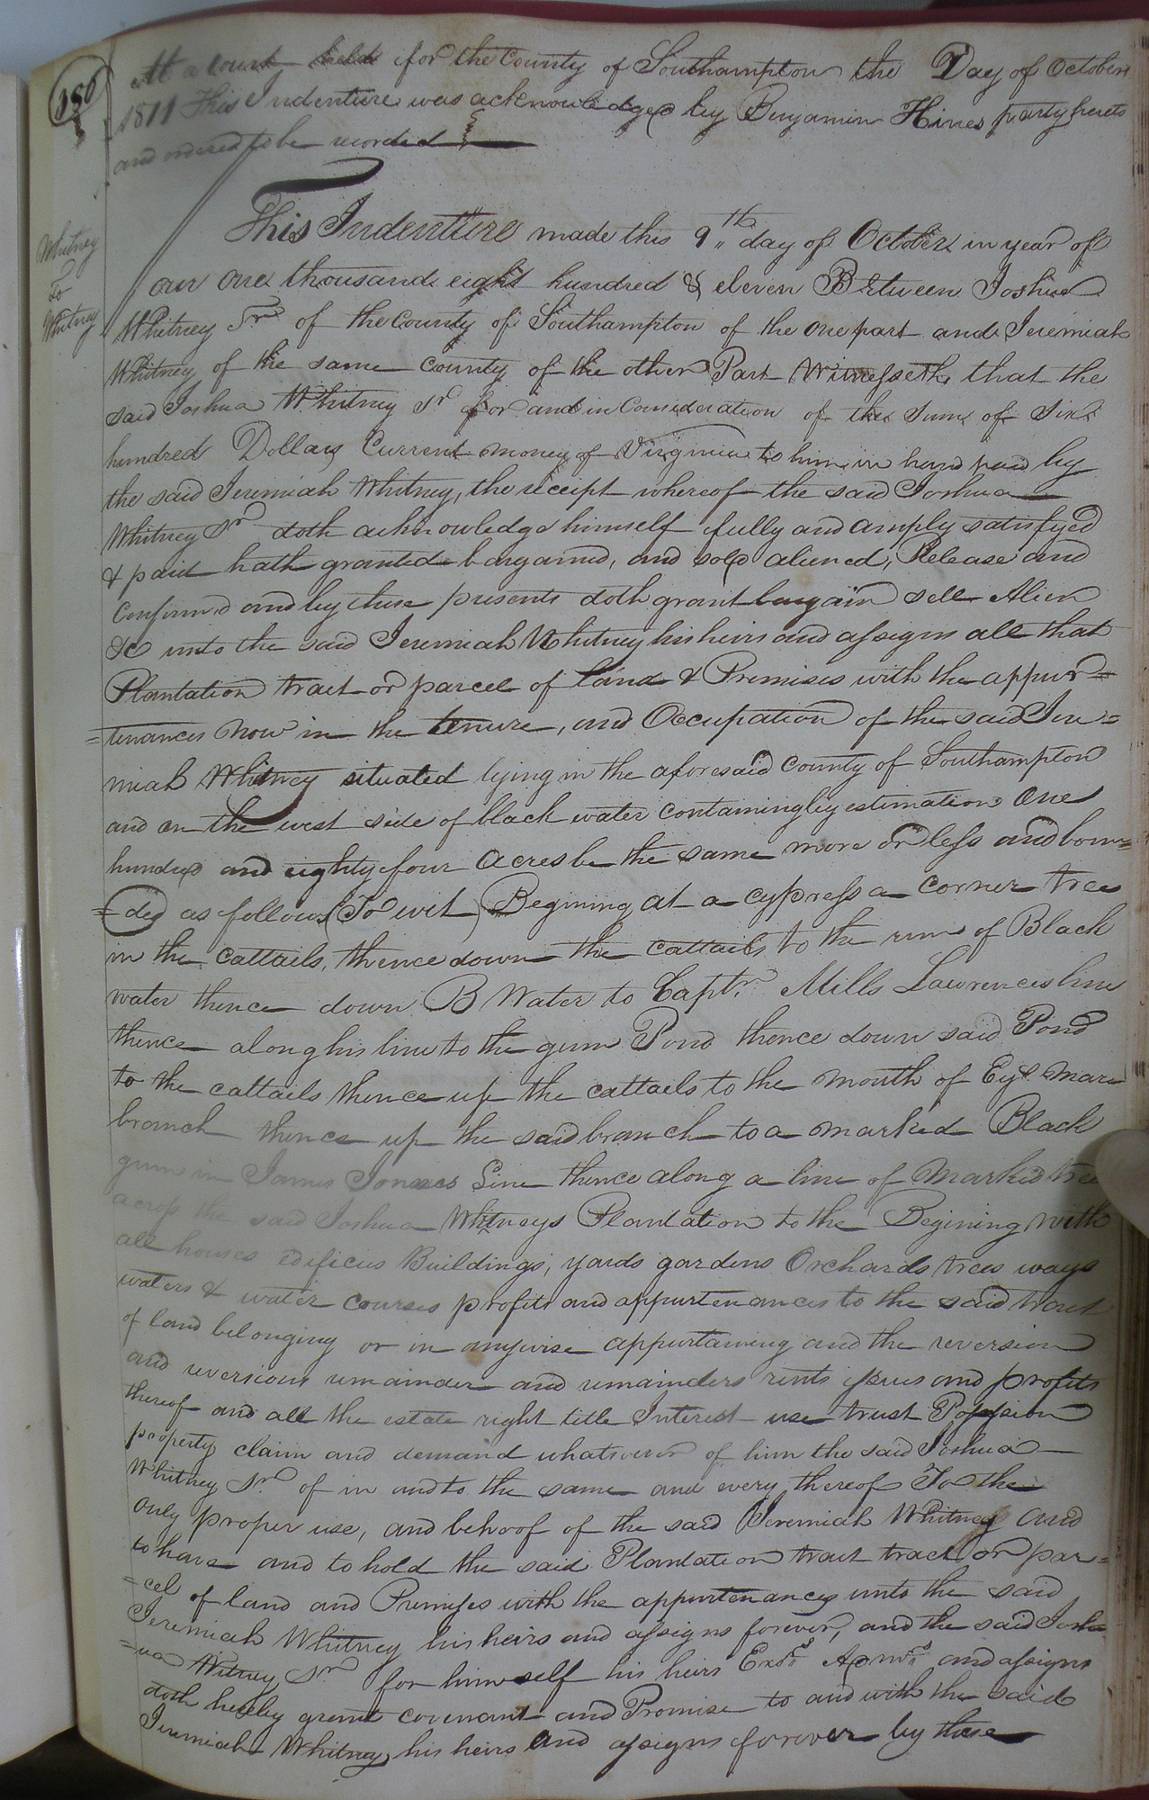 180
At a court held for the County of Southampton the Day of October
1811 This Indenture was acknowledged by Benjamin Hines party hereto
and ordered to be recorded
Whitney
To
Whitney
This Indenture made this 9th day of October in year of
our one thousand eight hundred & eleven Between Joshua
Whitney Sr of the County of Southampton of the one part and Jeremiah
Whitney of the same County of the other Part Witnesseth that the
said Joshua Whitney Sr for and in Consideration of the Sum of Six
hundred Dollars Current money of Virginia to him in hand paid by
the said Jeremiah Whitney, the receipt whereof the said Joshua
Whitney Sr doth acknowledge himself fully and amply satisfyed
& paid hath granted bargained, and sold aliened, Release and
Confirmd and by these presents doth grant bargain sell Alien
&c unto the said Jeremiah Whitney his heirs and assigns all that
Plantation tract or parcel of land & Premises with the appur=
=tenances now in the tenure, and Occupation of the said Jere=
miah Whitney situated lying in the aforesaid County of Southampton
and on the west side of black water containing by estimation One
hundred and eighty four acres be the same more or less and boun=
=ded as follows (To wit) Begining at a cypress a corner tree
in the cattails, thence down the cattails to the run of Black
water thence down B Water to Captn. Mills Lawrences line
thence along his line to the gum Pond thence down said Pond
to the cattails thence up the cattails to the mouth of Mare
branch thence up the said branch to a marked Black
gum in James Joneses Line thence along a line of Marked tree
across the said Joshua Whitneys Plantation to the Begining with
all houses edificies Buildings, yards gardens Orchards trees ways
waters & water courses profits and appurtenances to the said tract
of land belonging or in anywise appurtaining and the reversion
and reversions remainder and remainders rents issues and profits
thereof and all the estate right title Interest use trust Possession
property claim and demand whatsoever of him the said Joshua
Whitney Sr. of in and to the same and every thereof To the
only proper use, and behoof of the said Jeremiah Whitney and
to have and to hold the said Plantation tract tract or par=
=cel of land and Premises with the appurtenances unto the said
Jeremiah Whitney his heirs and assigns forever, and the said Joshu
=ua Whitney Sr for himself his heirs Exors Admrs and assigns
doth hereby grant covenant and Promise to and with the said
Jeremiah Whitney, his heirs and assigns forever by these